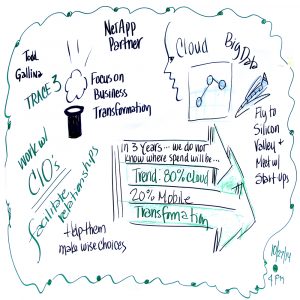 Todd
Gallina
TRACE3
NetApp
Partner
Focus on
Business
Transformation
Cloud
Big Data
Fly to
Silicon
Valley +
Meet w/
Start ups
work w/
CIO's
facilitate
relationships
+ help them
make wise choices
in 3 Years... we do not
know where spend will be...
Trend: 80% cloud
20% Mobile
Transformation
4 pm